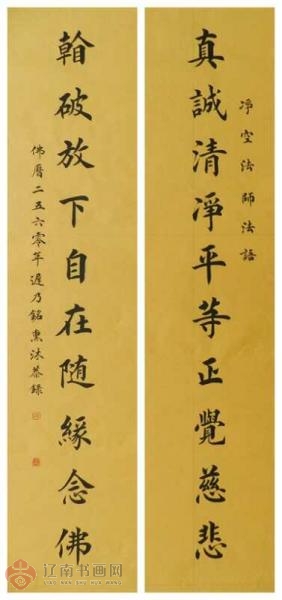 淨空法師法語
真誠清淨平等正覺慈悲
破放下自在随緣念佛
佛曆二五六零年遲乃銘熏沐恭錄
辽南书画网
LIAO NAN SHU HUA WANG